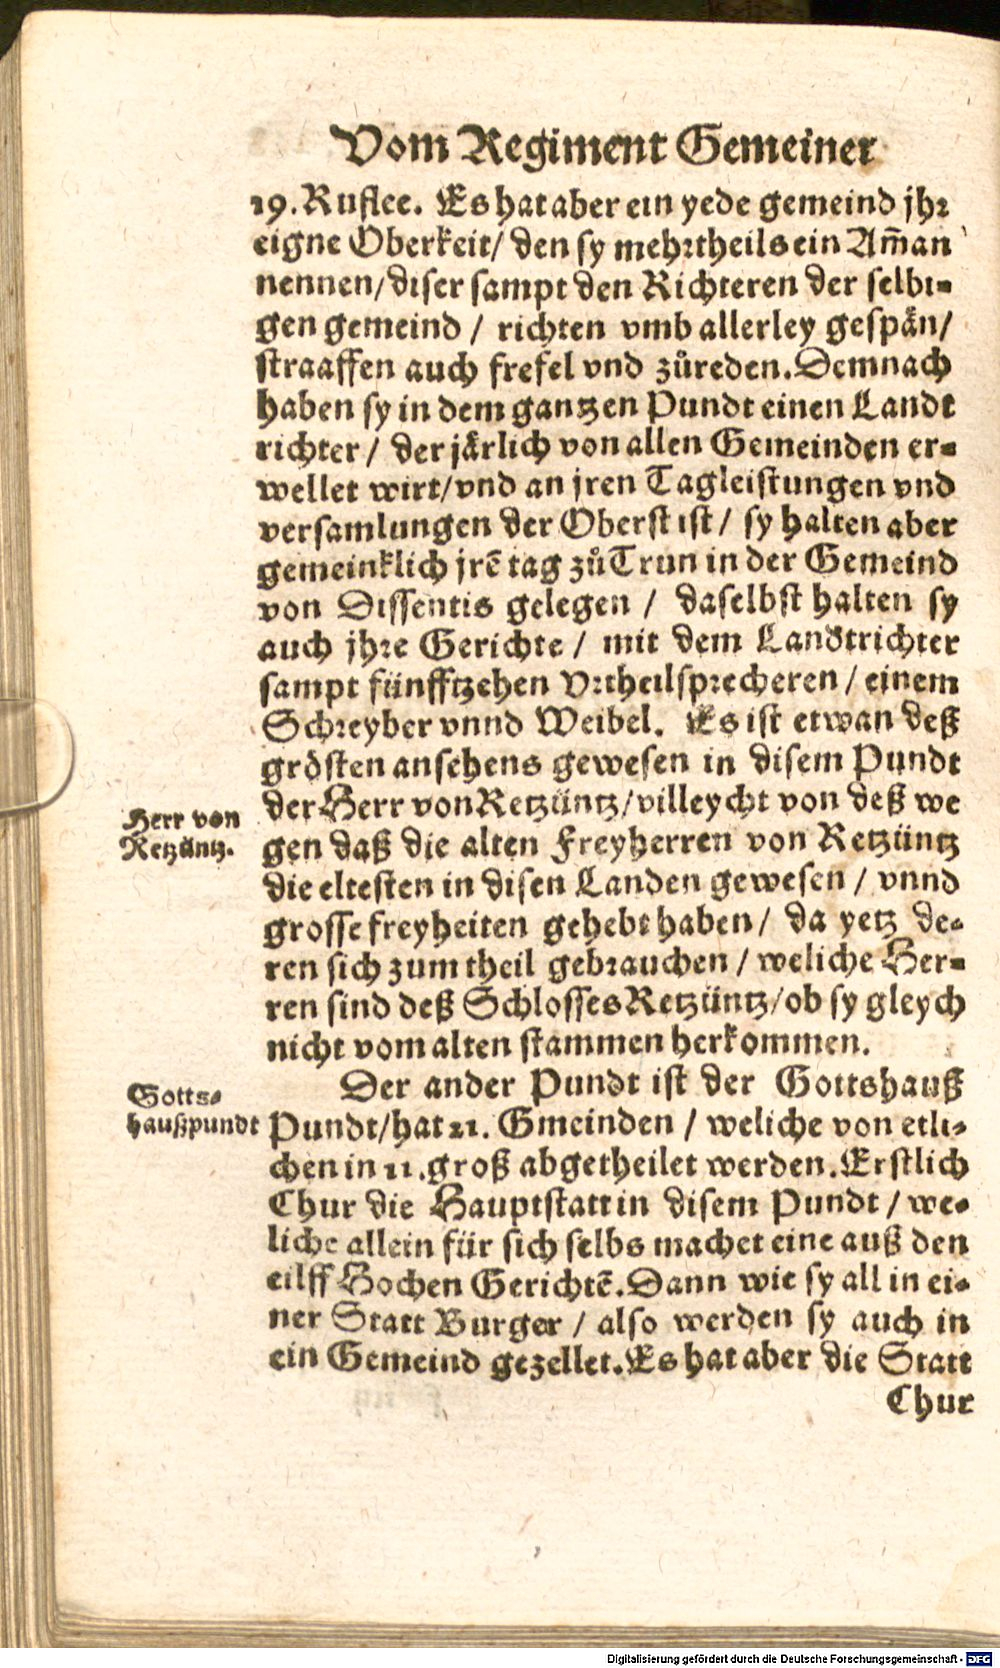 Vom Regiment Gemeiner
19. Ruflee. Es hat aber ein yede gemeind jhr
eigne Oberkeit/ den sy mehrtheils ein Am̃an
nennen/ diser sampt den Richteren der selbi-
gen gemeind / richten vmb allerley gespån/
straaffen auch frefel vnd zůreden. Demnach
haben sy in dem gantzen Pundt einen Landt
richter / der jårlich von allen Gemeinden er-
wellet wirt/ vnd an jren Tagleistungen vnd
versamlungen der Oberst ist / sy halten aber
gemeinklich jrẽ tag zů Trun in der Gemeind
von Dissentis gelegen / daselbst halten sy
auch jhre Gerichte / mit dem Landtrichter
sampt fünfftzehen Vrtheilsprecheren / einem
Schreyber vnnd Weibel. Es ist etwan deß
grösten ansehens gewesen in disem Pundt
der Herr von Retzüntz/ villeycht von deß we
gen daß die alten Freyherren von Retzüntz
die eltesten in disen Landen gewesen / vnnd
grosse freyheiten gehebt haben/ da yetz de-
ren sich zum theil gebrauchen / weliche Her-
ren sind deß Schlosses Retzüntz/ ob sy gleych
nicht vom alten stammen herkommen.
Herr von
Retzüntz.
Der ander Pundt ist der Gottshauß
Pundt/ hat 21. Gmeinden / weliche von etli-
chen in 11. groß abgetheilet werden. Erstlich
Chur die Hauptstatt in disem Pundt / we-
liche allein für sich selbs machet eine auß den
eilff Hochen Gerichtẽ. Dann wie sy all in ei-
ner Statt Burger / also werden sy auch in
ein Gemeind gezellet. Es hat aber die Statt
Gotts-
haußpundt
Chur
Digitalisierung gefördert durch die Deutsche Forschungsgemeinschaft - DFG